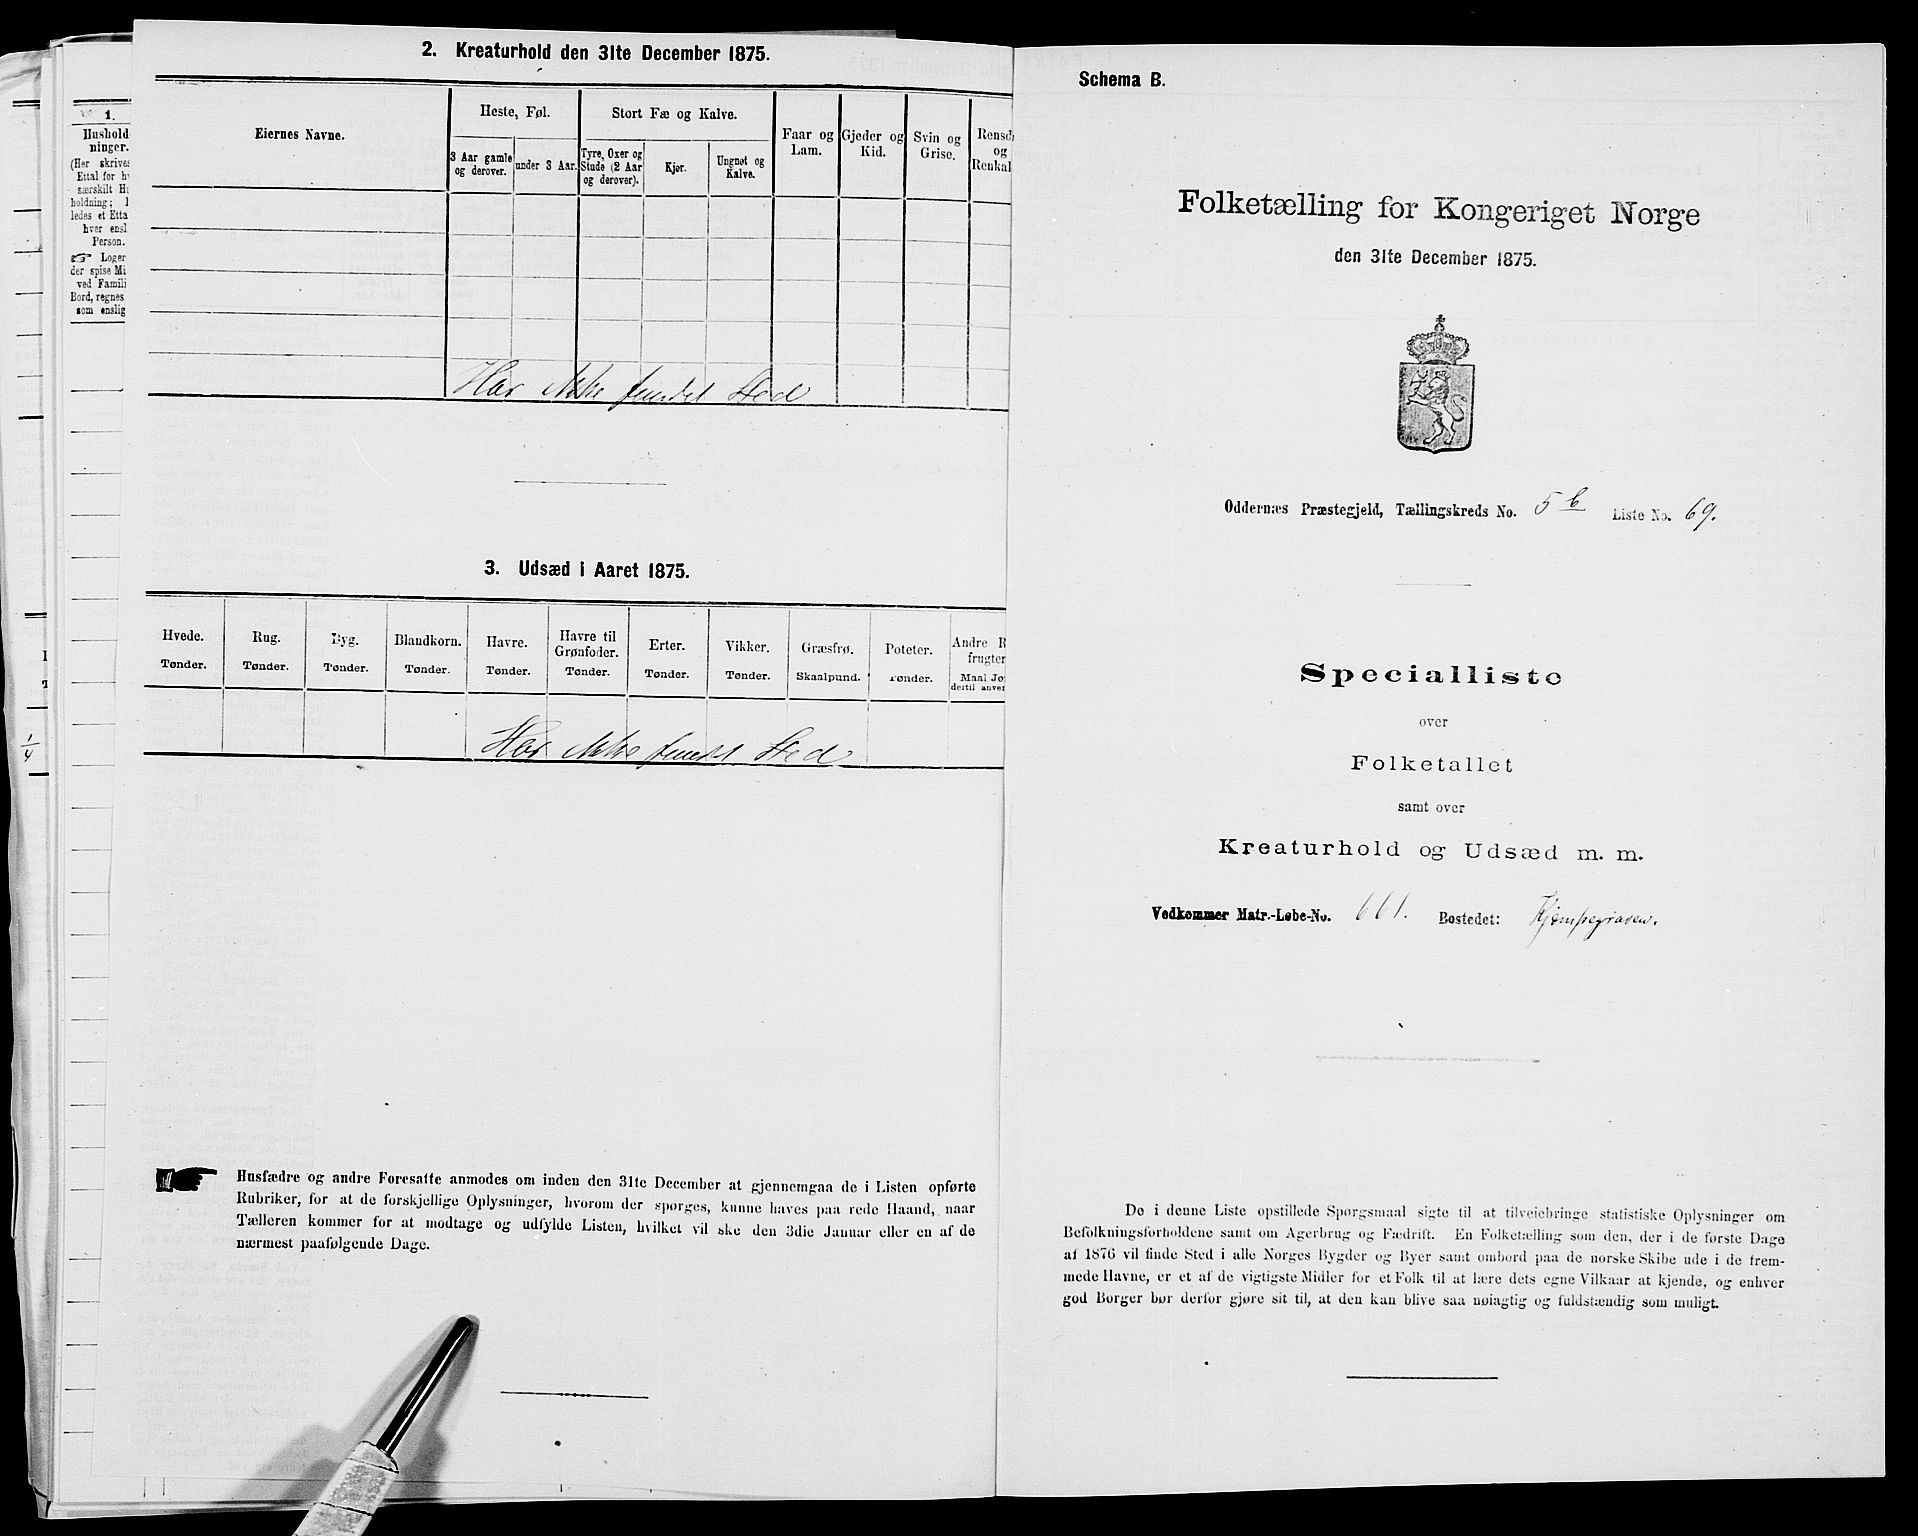 1.
Hushold-
ninger.
(Her skrives
Ettal for h
særskilt H
holdning;
ledes et Etta
hver ensl
Person.
☞ Loger
der spise Mi
ved Famili
Bord, regnes
som enslig
1/4
2. Kreaturhold den 31te December 1875.
Eiernes Navne.
Heste, Føl.
3 Aar gamle og derover.
under 3 Aar.
Stort Fæ og Kalve.
Tyre, Oxer og Stude (2 Aar og derover).
Kjør.
Ungnøt og Kalve.
Faar og Lam.
Gjeder og Kid.
Svin og Grise.
Rensd
og
Renkal
Har ikke fundet Sted
3. Udsæd i Aaret 1875.
Hvede. Tønder.
Rug. Tønder.
Byg. Tønder.
Blandkorn. Tønder.
Havre. Tønder.
Havre til Grønfoder. Tønder.
Erter. Tønder.
Vikker. Tønder.
Græsfrø. Skaalpund.
Poteter. Tønder.
Andre R
frugter
Maal Jo
dertil anve
Har ikke fundet Sted
☞ Husfædre og andre Foresatte anmodes om inden den 31te December at gjennemgaa de i Listen opførte
Rubriker, for at de forskjellige Oplysninger, hvorom der spørges, kunne haves paa rede Haand, naar
Tælleren kommer for at modtage og udfylde Listen, hvilket vil ske den 3die Januar eller en af de
nærmest paafølgende Dage.
Schema B.
Folketælling for Kongeriget Norge
den 31te December 1875.
Oddernæs Præstegjeld, Tællingskreds No. 5 b Liste No. 69.
Specialliste
over
Folketallet
samt over
Kreaturhold og Udsæd m. m.
Vedkommer Matr.-Løbe-No. 661. Bostedet: Kjempegraven.
De i denne Liste opstillede Spørgsmaal sigte til at tilveiebringe statistiske Oplysninger om
Befolkningsforholdene samt om Agerbrug og Fædrift. En Folketælling som den, der i de første Dage
af 1876 vil finde Sted i alle Norges Bygder og Byer samt ombord paa de norske Skibe ude i de frem-
mede Havne, er et af de vigtigste Midler for et Folk til at lære dets egne Vilkaar at kjende, og enhver
god Borger bør derfor gjøre sit til, at den kan blive saa nøiagtig og fuldstændig som muligt.